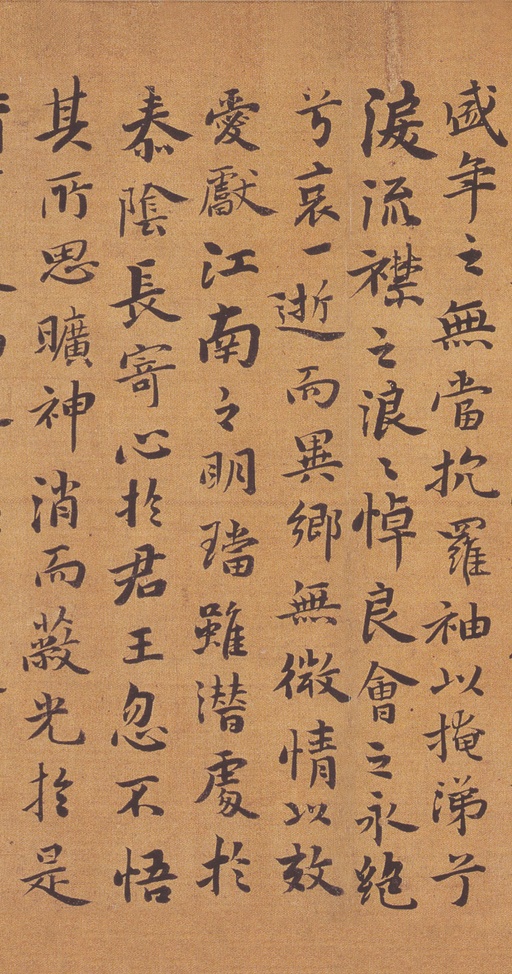 盛年之無當抗羅袖以掩涕兮
淚流襟之浪〻悼良會之永絕
兮哀一逝而異鄉無微情以效
愛獻江南之明璫雖潛處於
泰陰長寄心於君王忽不悟
其所思曠神消而蔽光於是